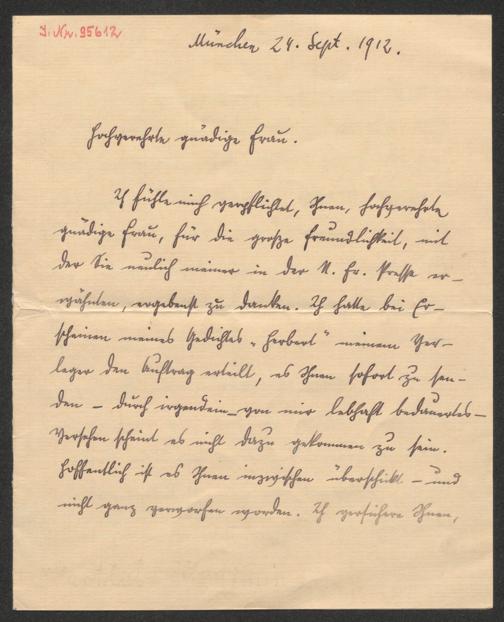 J. Nr. 95612
München 24. Sept. 1912.
Hochverehrte gnädige Frau.
Ich fühle mich verpflichtet, Ihnen, hochverehrte
gnädige Frau, für die große Freundlichkeit, mit
der Sie neulich meiner in der N. Fr. Presse er-
wähnten, ergebenst zu danken. Ich hatte bei Er-
scheinen meines Gedichtes „Herbert" meinem Ver-
leger den Auftrag erteilt, es Ihnen sofort zu sen-
den – durch irgendein – von mir lebhaft bedauertes –
Versehen scheint es nicht dazu gekommen zu sein.
Hoffentlich ist es Ihnen inzwischen überschickt – und
nicht ganz verworfen worden. Ich versichere Ihnen,